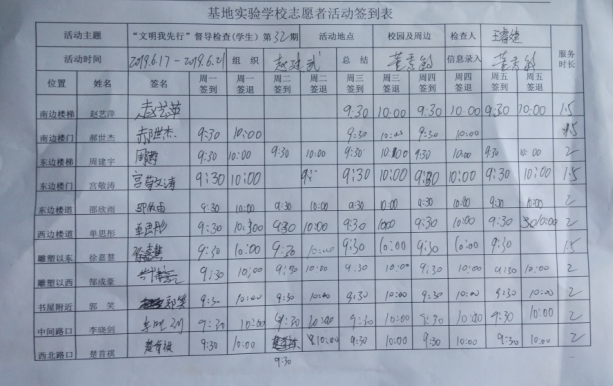 基地实验学校志愿者活动签到表
活动主题 "文明我先行"督导检查(学生)第32期 活动地点 校园及周边 检查人
活动时间 2019.6.17-2019.6.21 组织 总结 董秀敏 信息录入 董秀敏 服务时长
位置 姓名 签名 周一签到 周一签退 周二签到 周二签退 周三签到 周三签退 周四签到 周四签退 周五签到 周五签退
南边楼梯 赵艺萍 9:30 10:00 9:30 10:00 9:30 10:00 1.5
南边楼门 郝世杰 郝世杰 9:30 10:00 9:30 10:00 9:30 10:00
东边楼梯 周建宇 9:30 10:00 9:30 10:00 9:30 10:00 9:30 10:00 9:30 10:00 2
东边楼门 宫敬涛 宫敬涛 9:30 10:00 9:30 10:00 9:30 10:00 9:30 10:00 1.5
东边楼道 邵欣雨 9:30 10:00 9:30 10:00 9:30 10:00 9:30 10:00 9:30 10:00 2
西边楼道 单思彤 单思彤 9:30 10:00 9:30 10:00 9:30 1000 9:30 10:00 9:30 10:00 2
雕塑以东 徐嘉慧 徐嘉慧 9:30 10:00 9:30 10:00 9:30 10:00 9:30 10:00 9:30 1.5
雕塑以西 9:30 10:00 9:30 10:00 9:30 10:00 9:30 10:00 9:30 10:00 2
书屋附近 郭 笑 郭笑 9:30 10:00 9:30 10:00 9:30 10:00 9:30 10:00 9:30 10:00 2
中间路口 李晓剑 9:30 10:00 9:30 10:00 9:30 10:00 9:30 10:00 9:30 10:00 2
西北路口 楚首祺 楚首祺 9:30 10:00 10:00 9:30 10:00 9:30 10:00 9:30 10:00 2
9:30